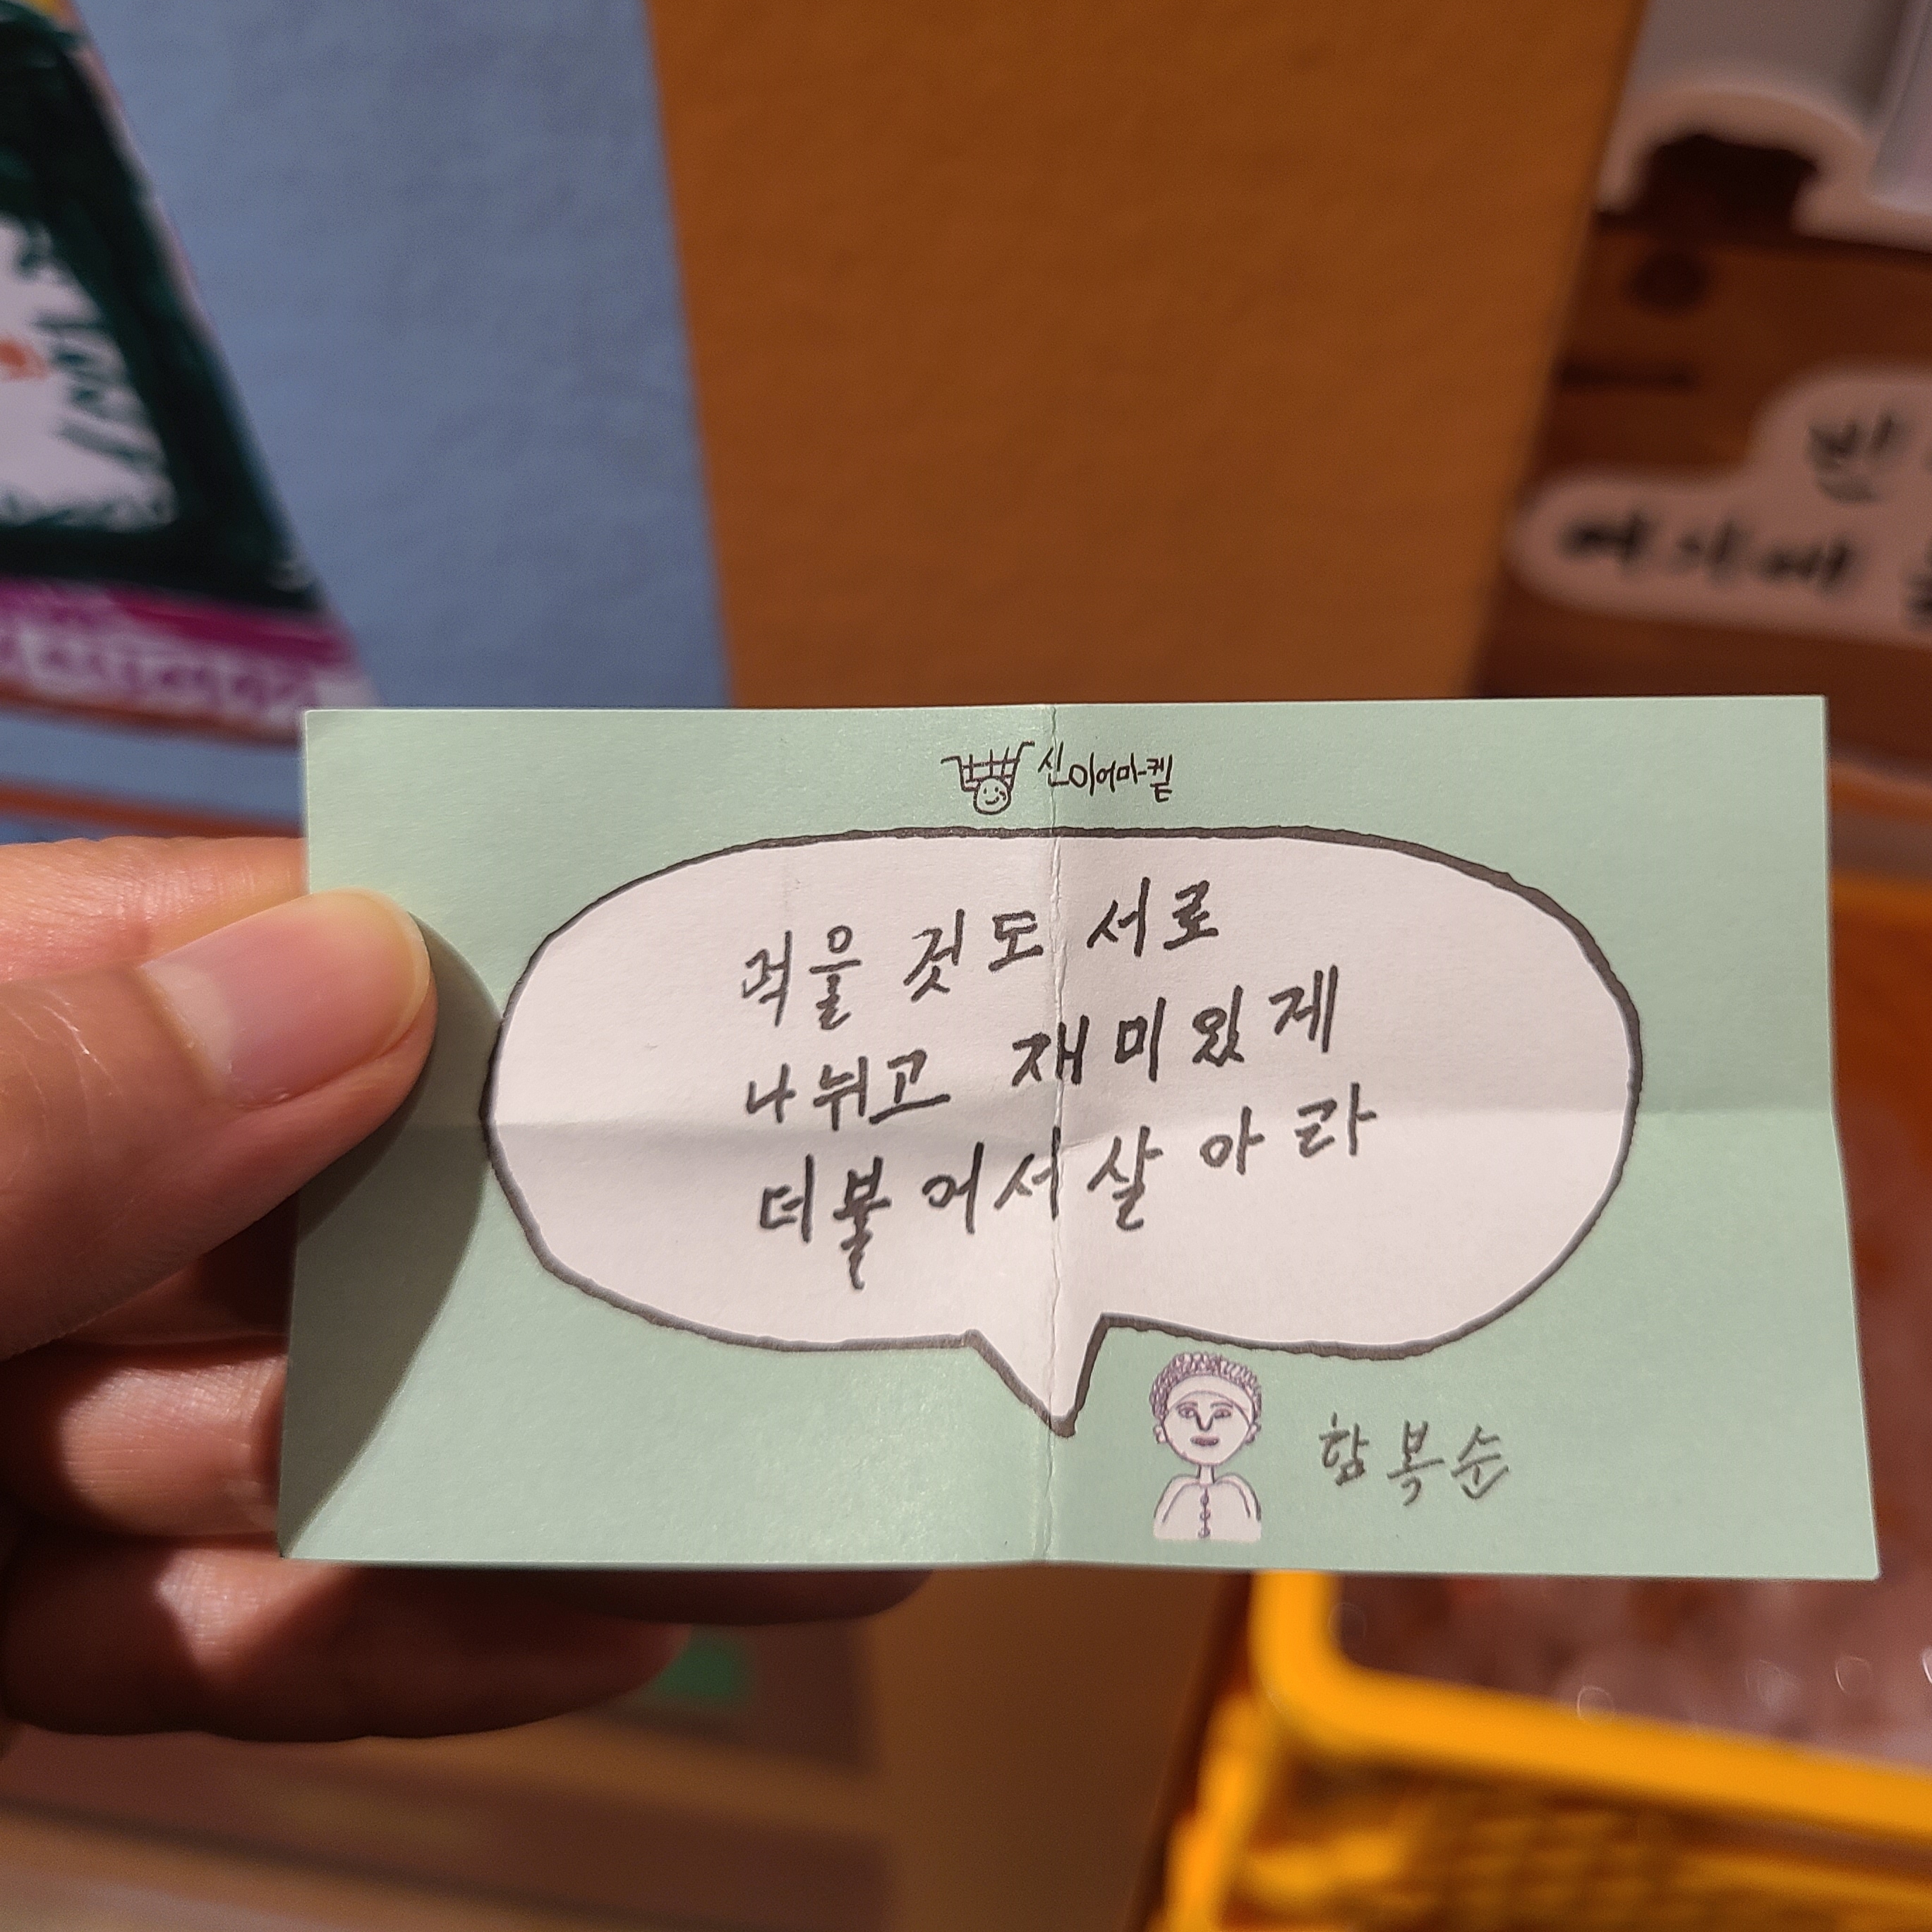 신이어마켙
적을 것도 서로
나뉘고 재미있게
더불어서살아라
함복순